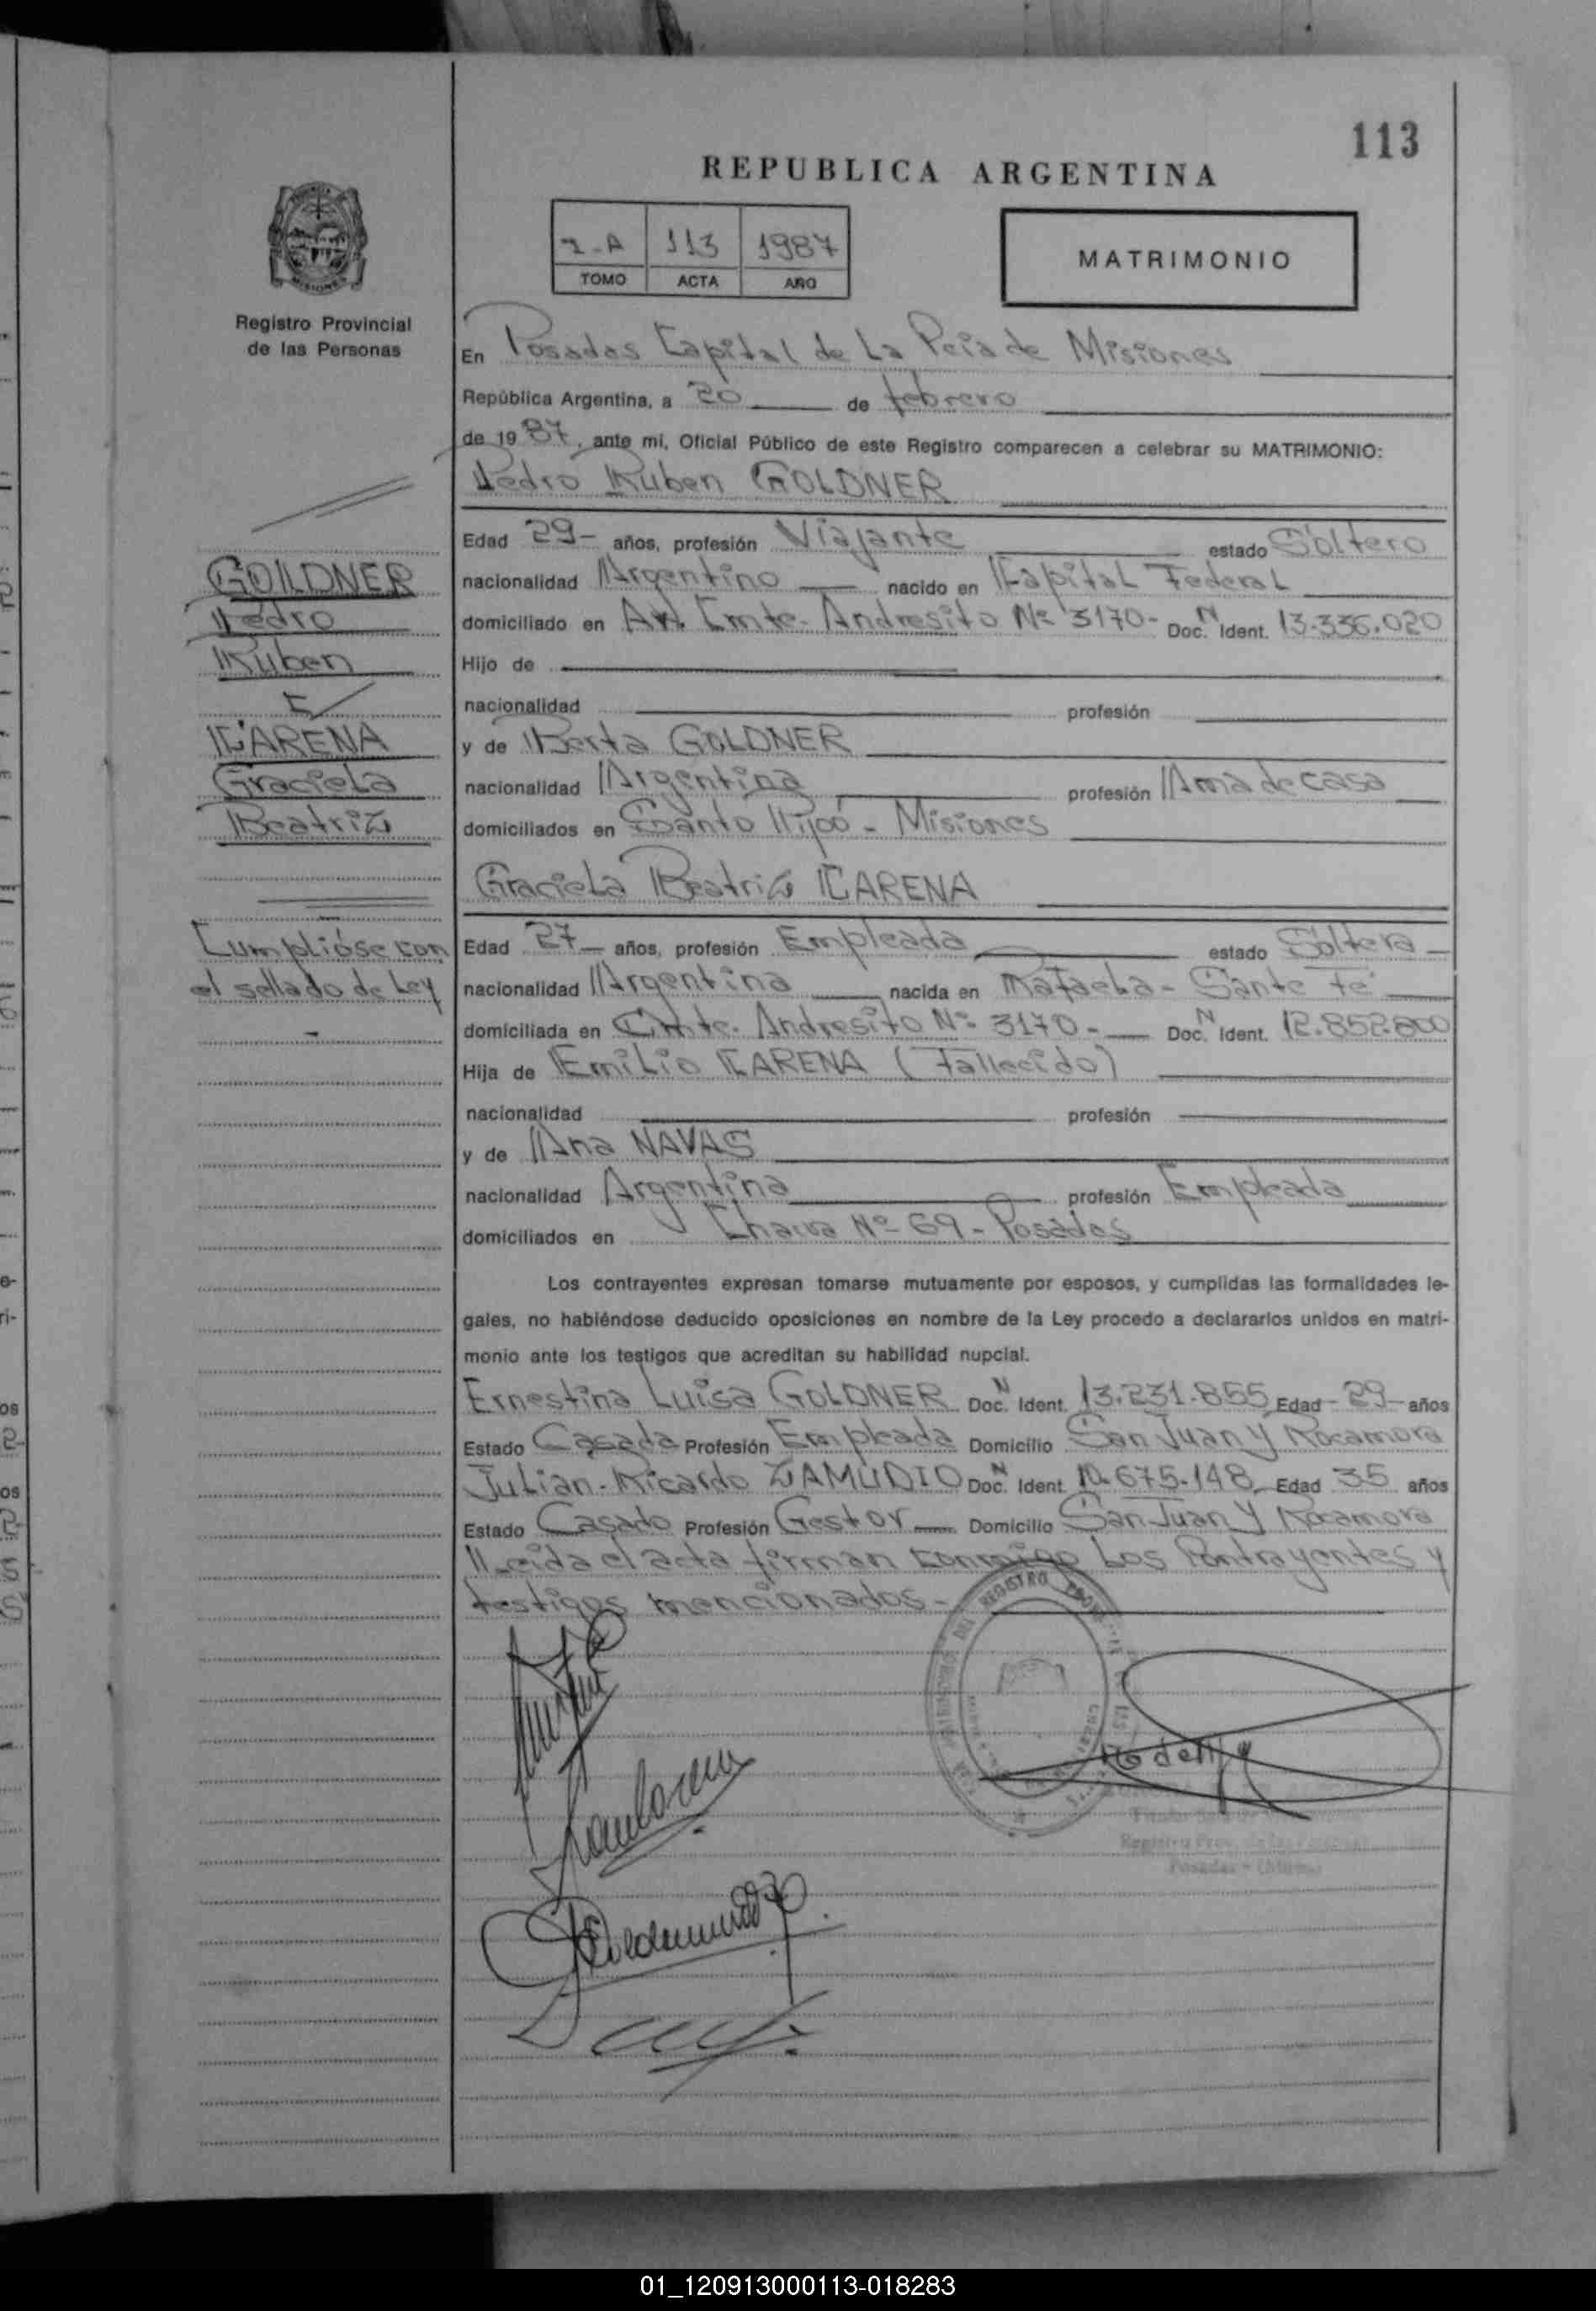 113
REPUBLICA ARGENTINA
1-A 113 1987
TOMO ACTA AÑO
MATRIMONIO
Registro Provincial
de las Personas
En Posadas Capital de La Pcia de Misiones
República Argentina, a 20 de febrero
de 1987, ante mi, Oficial Público de este Registro comparecen a celebrar su MATRIMONIO:
Pedro Ruben GOLDNER
Edad 29- años, profesión Viajante estado Soltero
nacionalidad Argentino nacido en Capital Federal
domiciliado en Av. Cmte. Andresito Nº 3170- Doc. N Ident. 13.336.020
Hijo de
nacionalidad profesión
y de Berta GOLDNER
nacionalidad Argentina profesión Ama de casa
domiciliados en Santo Pipó - Misiones
Graciela Beatriz CARENA
Edad 27- años, profesión Empleada estado Soltera-
nacionalidad Argentina nacida en Rafaela- Santa Fé
domiciliada en Cmte. Andresito Nº 3170.- Doc. N Ident. 12.852.800
Hija de Emilio CARENA (Fallecido)
nacionalidad profesión
y de Ana NAVAS
nacionalidad Argentina profesión Empleada
domiciliados en Nº 69- Posadas
Los contrayentes expresan tomarse mutuamente por esposos, y cumplidas las formalidades le-
gales, no habiéndose deducido oposiciones en nombre de la Ley procedo a declararlos unidos en matri-
monio ante los testigos que acreditan su habilidad nupcial.
Ernestina Luisa GOLDNER Doc. N Ident. 13.231.855 Edad-29-años
Estado Casada Profesión Empleada Domicilio San Juan y Rocamora
Julian-Ricardo ZAMUDIO Doc. N Ident. 10.675.148 Edad 35 años
Estado Casado Profesión Gestor Domicilio San Juan y Rocamora
Leida el acta firman conmigo Los Contrayentes y
testigos mencionados.-
GOLDNER
Pedro
Ruben
CARENA
Graciela
Beatriz
Cumplióse con
el sellado de Ley
-
01_120913000113-018283